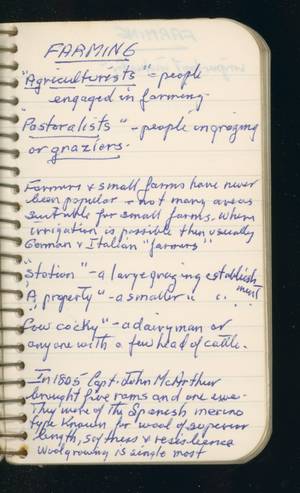 FARMING
"Agriculturists" = people
engaged in farming.
"Pastoralists" - people in grazing
or graziers.
Farmers & small farms have never
been popular - not many areas
suitable for small farms. Where
irrigation is possible then usually
German & Italian "farmers"
"Station" - a large grazing establish
ment
"A property" - a smaller " " "
"Cow cocky" - a dairyman or
anyone with a few head of cattle.
In 1805 Capt. John McArthur
brought five rams and one ewe.
They were of the Spanish merino
type known for wool of superior
length, softness & resilience
Woolgrowing is single most